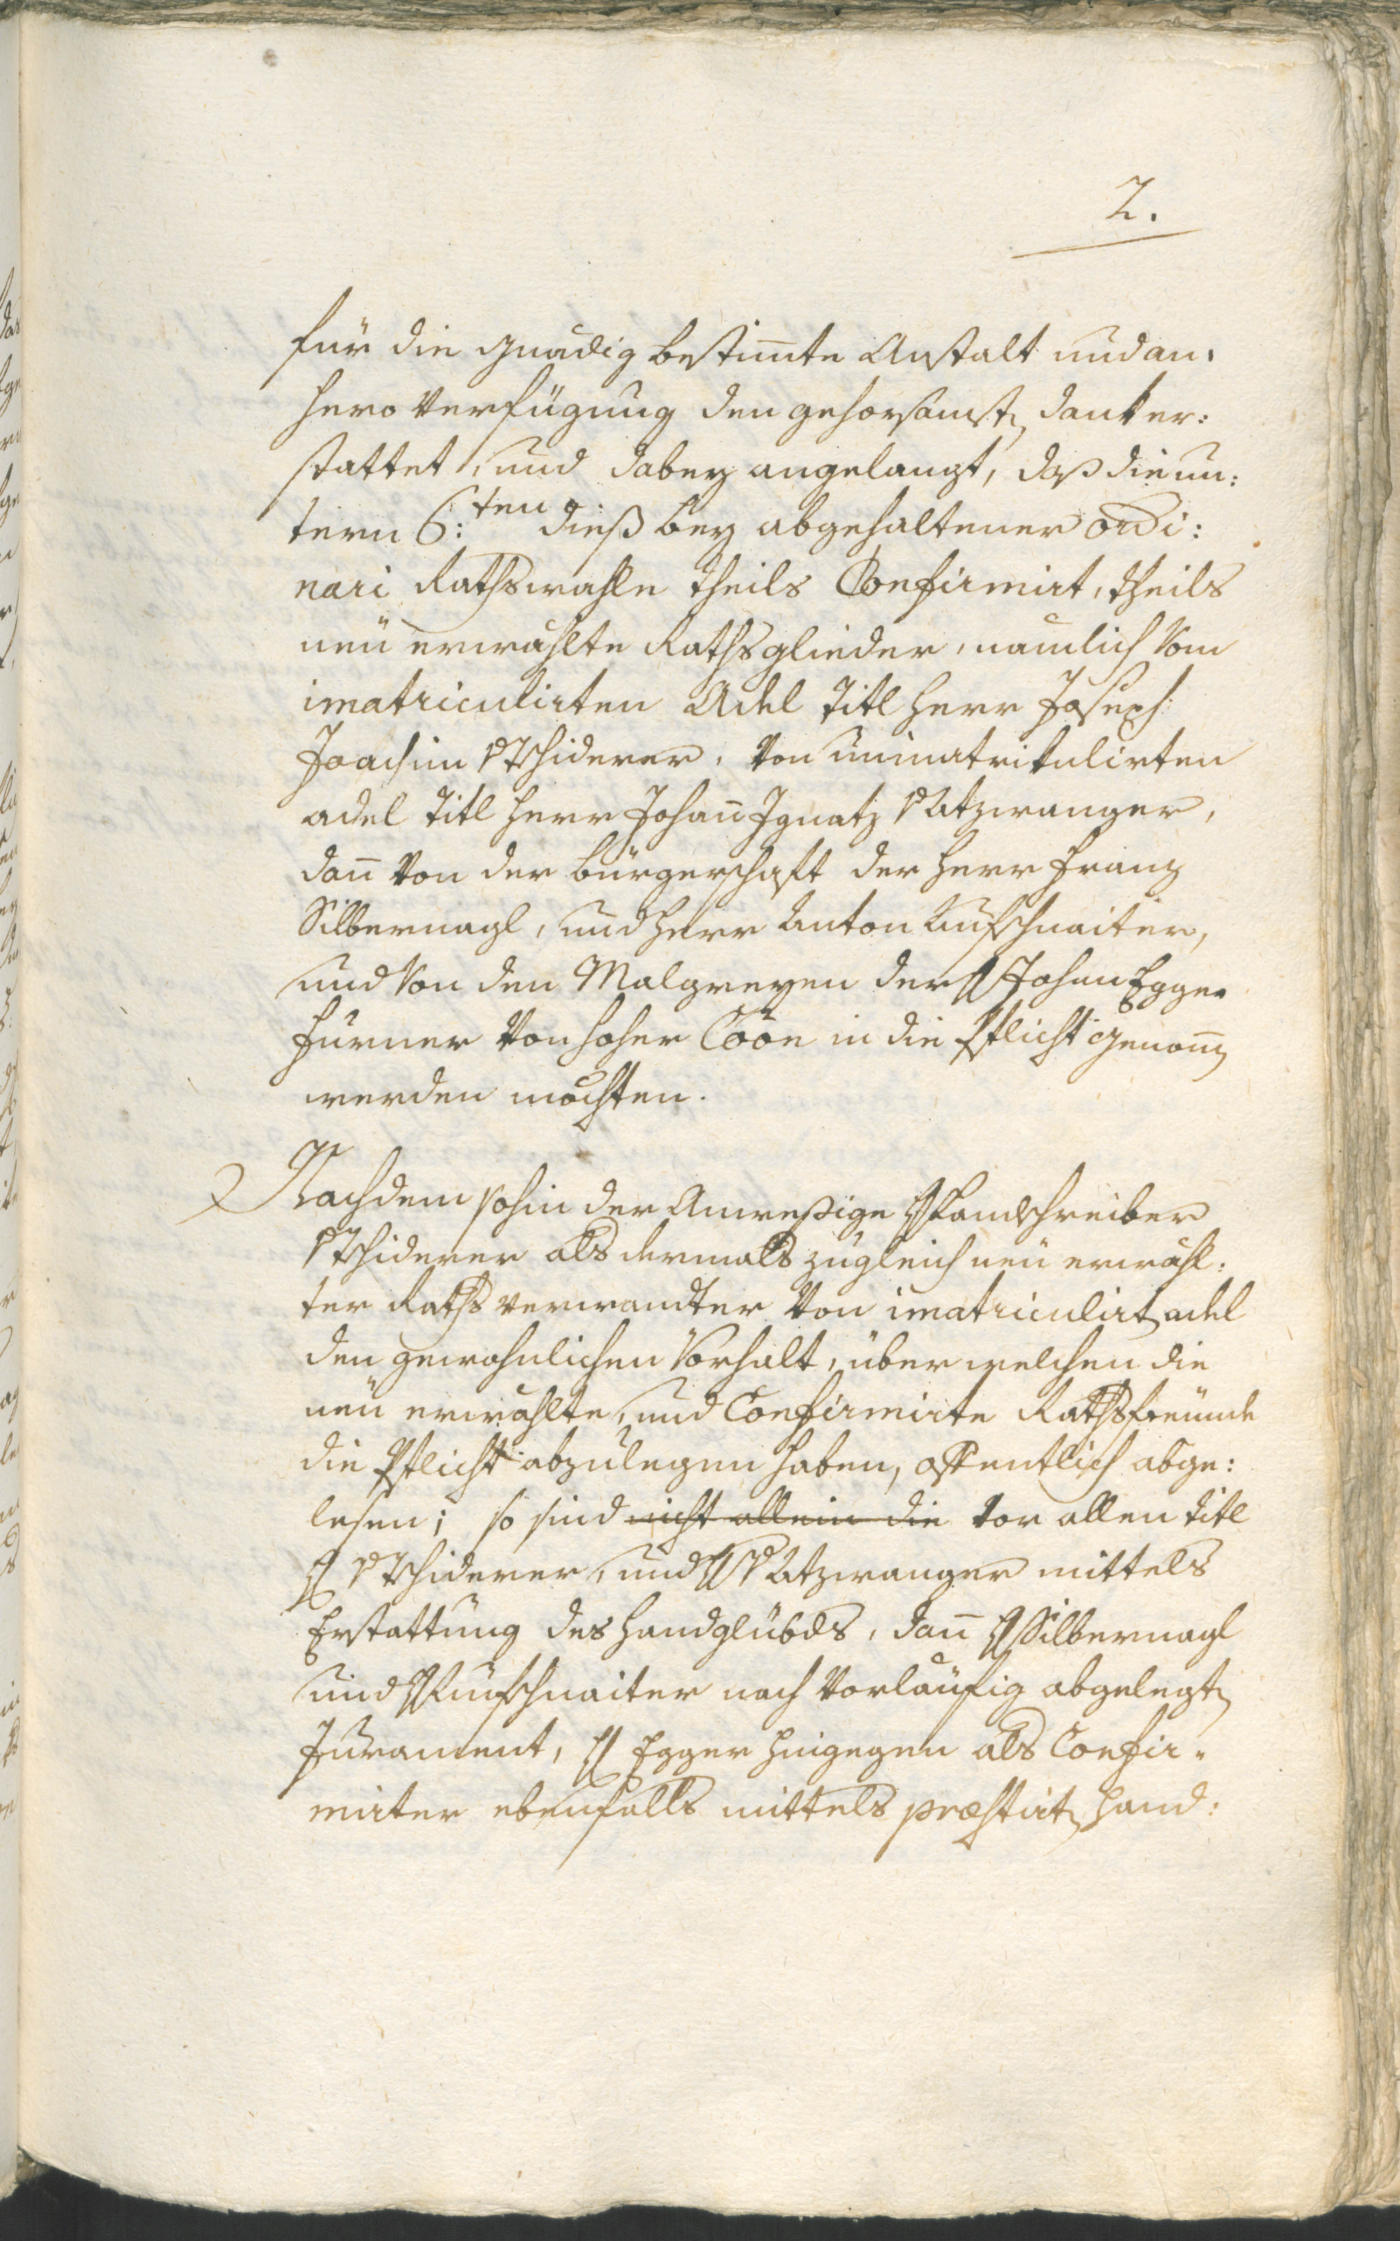 2.
für die gnädig bestim̅te Anstalt und an¬
hero Verfügung den gehorsamst dank er:
stattet, und dabey angelangt, daß die un:
term 6:ten dieß bey abgehaltener ordi:
nari Rathswahle theils Confirmirt, theils
neü erwählte Rathsglieder, nämlich Vom
imatriculirten Adel Titl herr Joseph
Joachim v Tschiderer, Von unimatrikulirten
adel Titl herr Johan̅ Ignatz v Atzwanger,
dan̅ Von der bürgerschaft der herr Franz
Silbernagl, und herr Anton Aufschnaiter,
und Von den Malgreyen der H Johan Egger
Furner Von hoher Co͠on in die Pflicht genom̅
werden möchten.
Nachdem sohin der Anweßige H Landschreiber
v Tschiderer als dermals zugleich neü erwähl:
ter Raths verwandter Von imatriculirt adel
den gewohnlichen Vorhalt, über welchen die
neü erwählte, und Confirmirte Rathsfreünde
die Pflicht abzulegen haben, offentlich abge:
lesen; so sind nicht allein die vor allen Titl
H v Tschiderer, und H v Atzwanger mittels
Erstattung des handglübds, dan̅ H Silbernagl
und H Aufschnaiter nach Vorläufig abgelegt
Jurament, H Egger hingegen als Confir¬
mirter ebenfalls mittels præstirt hand: